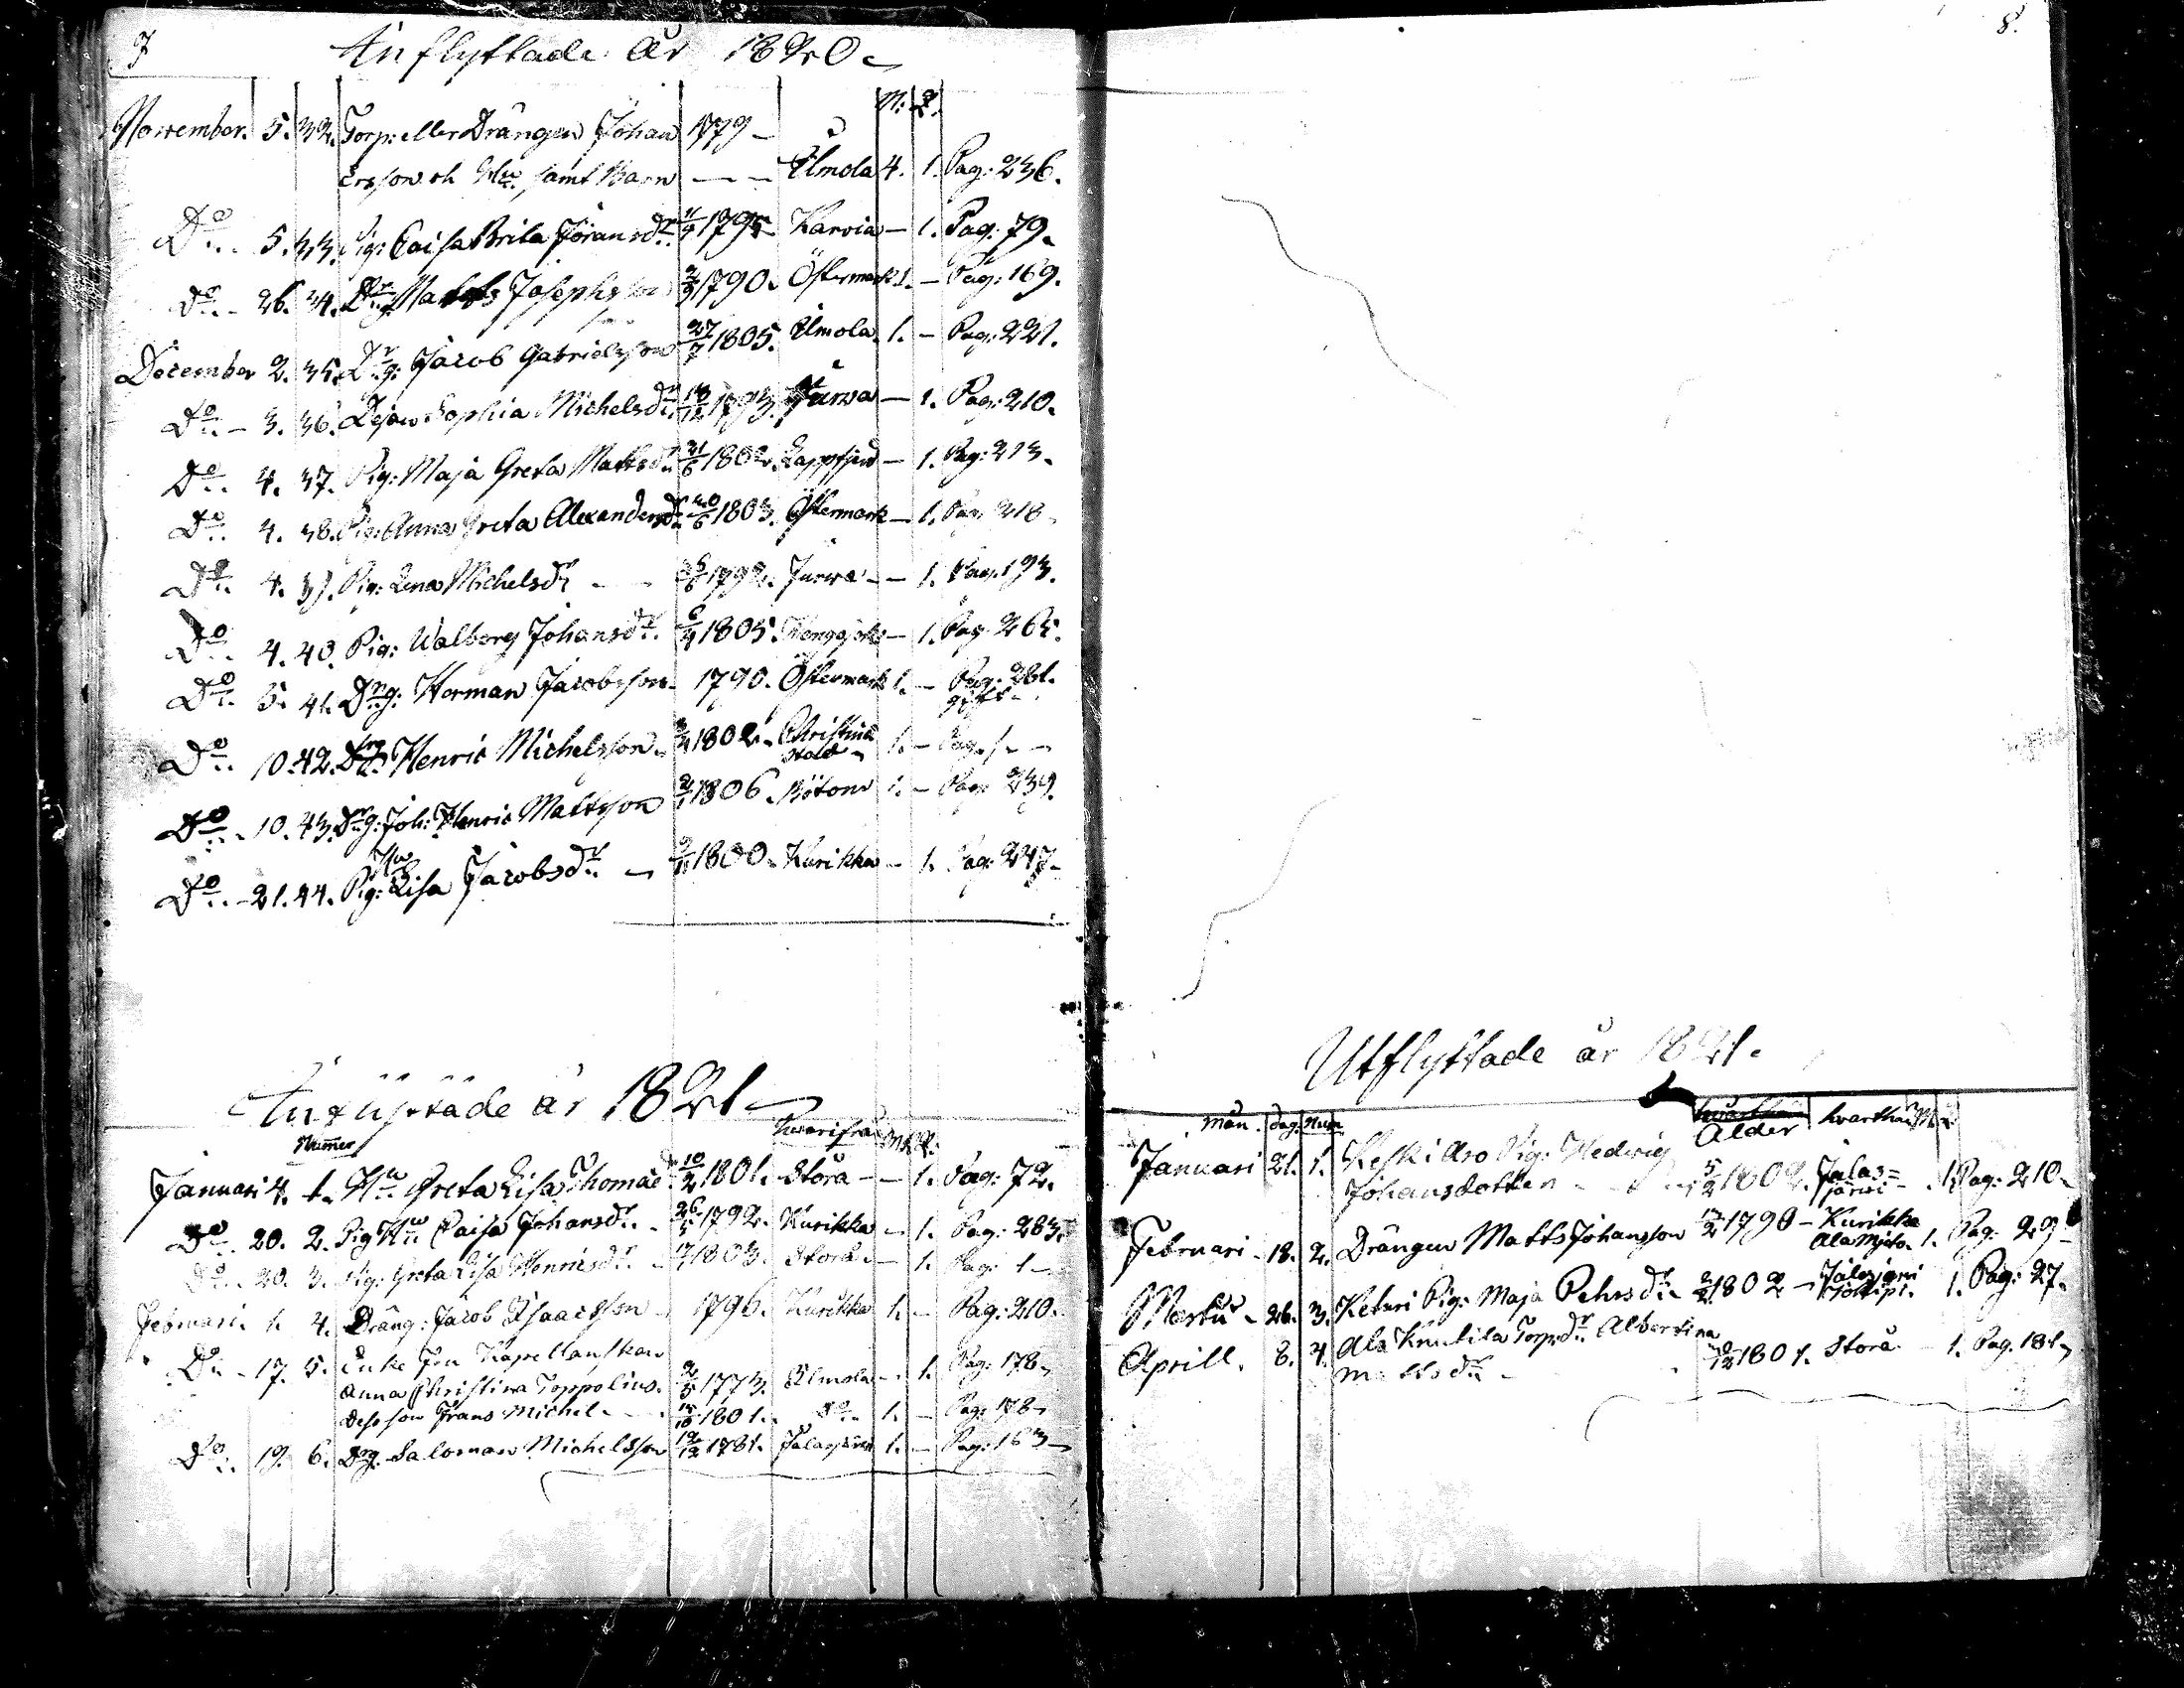 7
Inflyttade år 1820
M: Q:
November. 5. 32. Torp: eller Drängen Johan 1779 -
Ersson oh Hu samt Barn - - Ilmola 4. 1. Pag: 236.
Do 5. 33. Pig: Caisa Brita Jöransdr 11/4 1795 Karvia - 1. Pag: 79.
Do - 26. 34. Drg Matts Josephsson 2/9 1790. Östermark 1. - Pag: 169.
December 2. 35. Drg: Jacob Gabrielsson 27/7 1805. Ilmola. 1. - Pag: 221.
Do - 3. 36. Sophia Michelsdr 18/12 1793. Jurva - 1. Pag: 210.
Do 4. 37. Pig: Maja Greta Mattsdr 21/6 1802. Lappfjerd - 1. Pag: 213.
Do 4. 38. Pig: Anna Greta Alexandersdr 30/6 1803. Östermark - 1. Pag: 218.
Do 4. 39. Pig: Lena Michelsdr - - 1792. Jurva - - 1. Pag. 193.
Do 4. 40. Pig: Walborg Johansdr. 6/4 1805. - 1. Pag. 265.
Do 5. 41. Drg: Herman Jacobsson 1790. Östermark 1. - Pag: 281.
gift
Do 10. 42. Drg Henric Michelsson 1802. Christina
stad 1. - Pag. 1 - -
Do - 10. 43. Drg: Joh: Henric Mattsson 1806. Bötom 1. - Pag: 239.
Hu
Do - 21. 44. Pig: Lisa Jacobsdr - 1800. Kurikka - 1. Pag: 247
Inflyttade år 1821
Numer hvarifrån M. Q.
Januari 4. 1. Hu Greta Lisa Thomæ dr 10/2 1801. Storå - - 1. Pag: 72.
Do 20. 2. Pig Hu Caisa Johansdr. 26 1792. Kurikka - 1. Pag: 283.
Do 20. 3. Pig: Greta Lisa Henricsdr - 1803. Storå - 1. Pag: 1
Februari. 1. 4. Dräng: Jacob Isaacsson 1796. Kurikka 1. - Pag: 210.
Do - 17. 5. Enke Fru Kapellanskan
Anna Christina Toppolius. 1773. Ilmola - 1. Pag: 178
Dess son Frans Michel - - 1801. Do - 1. - Pag: 178
Do 19. 6. Drg. Saloman Michelsson 19/12 1781. Jalasjärvi 1. - Pag: 163
8.
Utflyttade år 1821.
Mån. dag. Num Ålder hvarthän M. Q.
Januari 21. 1. Keski Aro Pig: Hedvig
Johansdotter - - 5/2 1802. Jalas=
järvi - 1. Pag: 210
Februari - 18. 2. Drängen Matts Johansson 1790 - Kurikka
Ala Myto. 1. Pag: 29
Martii - 26. 3. Keturi Pig: Maja Pehrsdr 1802 - Jalasjärvi
1. Pag: 27.
Aprill. 8. 4. Ala Knutila Torp: dr Albertina
Mattsdr - 1801. Storå - 1. Pag. 181